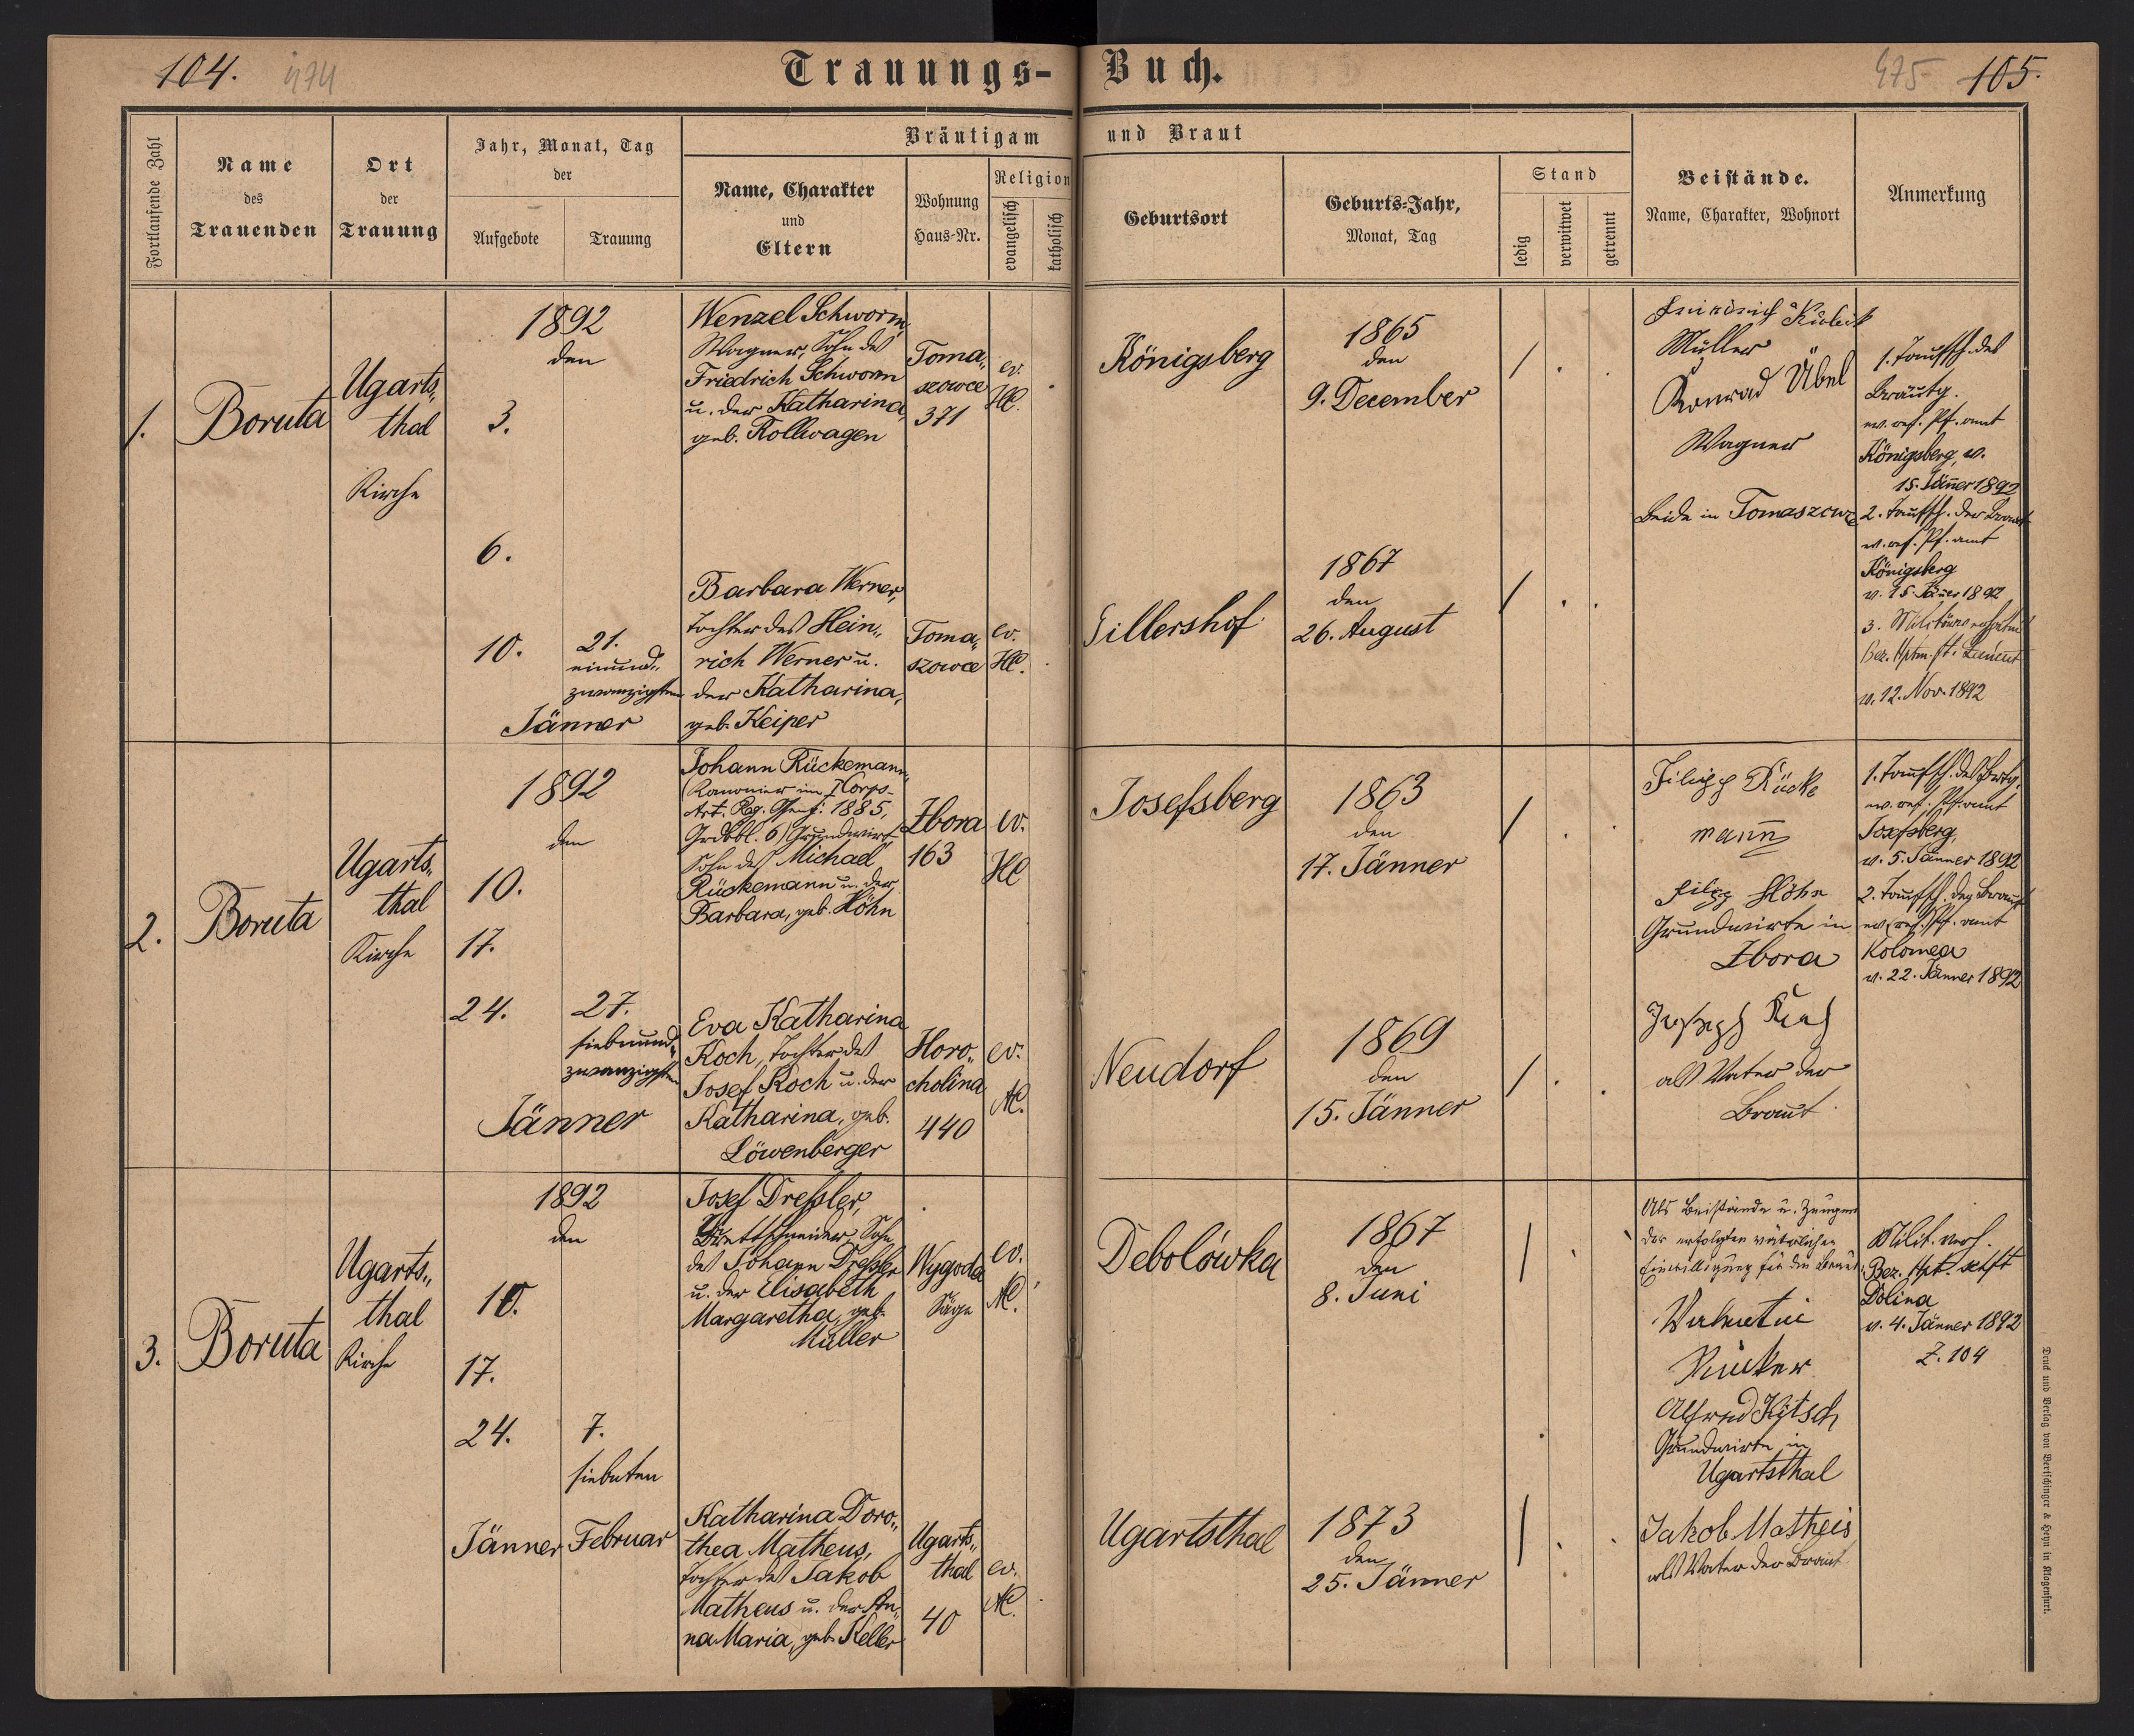 104. 474
Trauungs-Buch.
475 105.
Fortlaufende Zahl
Name
des
Trauenden
Ort
der
Trauung
Jahr, Monat, Tag
der
Aufgebote
Trauung
Bräutigam und Braut
Name, Charakter
und
Eltern
Wohnung
Haus-Nr.
Religion
evangelisch
katholisch
Geburtsort
Geburts-Jahr,
Monat, Tag
Stand
ledig
verwitwet
getrennt
Beistände.
Name, Charakter, Wohnort
Anmerkung
1.
Boruta
Ugarts„
thal
Kirche
1892
den
3.
6.
10.
21.
einund„
zwanzigsten
Jänner
Wenzel Schworm,
Wagner, Sohn des
Friedrich Schworm
u. der Katharina,
geb. Rollwagen
Toma„
szowce
371
ev.
HC.
Königsberg
1865
den
9. December
Barbara Werner,
Tochter des Hein„
rich Werner u.
der Katharina,
geb. Keiper
Toma„
szowce
ev.
HC.
Gillershof
1867
den
26. August
Friedrich Kubik
Müller
Konrad Übel
Wagner
beide in Tomaszowce
1. Taufsch. des
Bräutg.
ev. ref. Pf. amt
Königsberg, v.
15. Jänner 1892
2. Taufsch. der Braut
ev. ref. Pf. amt
Königsberg
v. 15. Jänner 1892
3.
Bez. Hptm.
v. 12. Nov. 1892
2.
Boruta
Ugarts„
thal
Kirche
1892
den
10.
17.
24.
27.
siebenund„
zwanzigsten
Jänner
Johann Rückemann,
(Kanonier im Corps-
Art. Reg. 1885,
Grdbbl. 6) Grundwirt
Sohn des Michael
Rückemann u. der
Barbara, geb. Höhn
Zbora
163
ev.
HC
Josefsberg
1863
den
17. Jänner
Eva Katharina
Koch, Tochter des
Josef Koch u. der
Katharina, geb.
Löwenberger
Horo„
cholina
440
ev.
AC.
Neudorf
1869
den
15. Jänner
Filipp Rücke
mann
Filipp Höhn
Grundwirte in
Zbora
Joseph Koch
als Vater der
Braut
1. Taufsch. des Brtg.
ev. ref. Pf. amt
Josefsberg,
v. 5. Jänner 1892
2. Taufsch. der Braut
ev. ref. Pf. amt
Kolomea
v. 22. Jänner 1892
3.
Boruta
Ugarts„
thal
Kirche
1892
den
10.
17.
24.
Jänner
7.
siebenten
Februar
Josef Dressler,
Brettschneider, Sohn
des Johann Dressler
u. der Elisabeth
Margaretha, geb.
Müller
Wygoda
Säge
ev.
AC.
Debolówka
1867
den
8. Juni
Katharina Doro„
thea Matheus,
Tochter des Jakob
Matheus u. der An„
na Maria, geb. Keller
Ugarts„
thal
40
ev.
AC.
Ugartsthal
1873
den
25. Jänner
Als Beistände u. Zeugen
der erfolgten väterlichen
Einwilligung für die Braut
Valentin
Alfred Kitsch
Grundwirte in
Ugartsthal
Jakob Matheis
als Vater der Braut
Milit. verh.
Bez. Hpt. schft
Dolina
v. 4. Jänner 1892
Z. 104
Druck und Verlag von Bertschinger & Heyn in Klagenfurt.